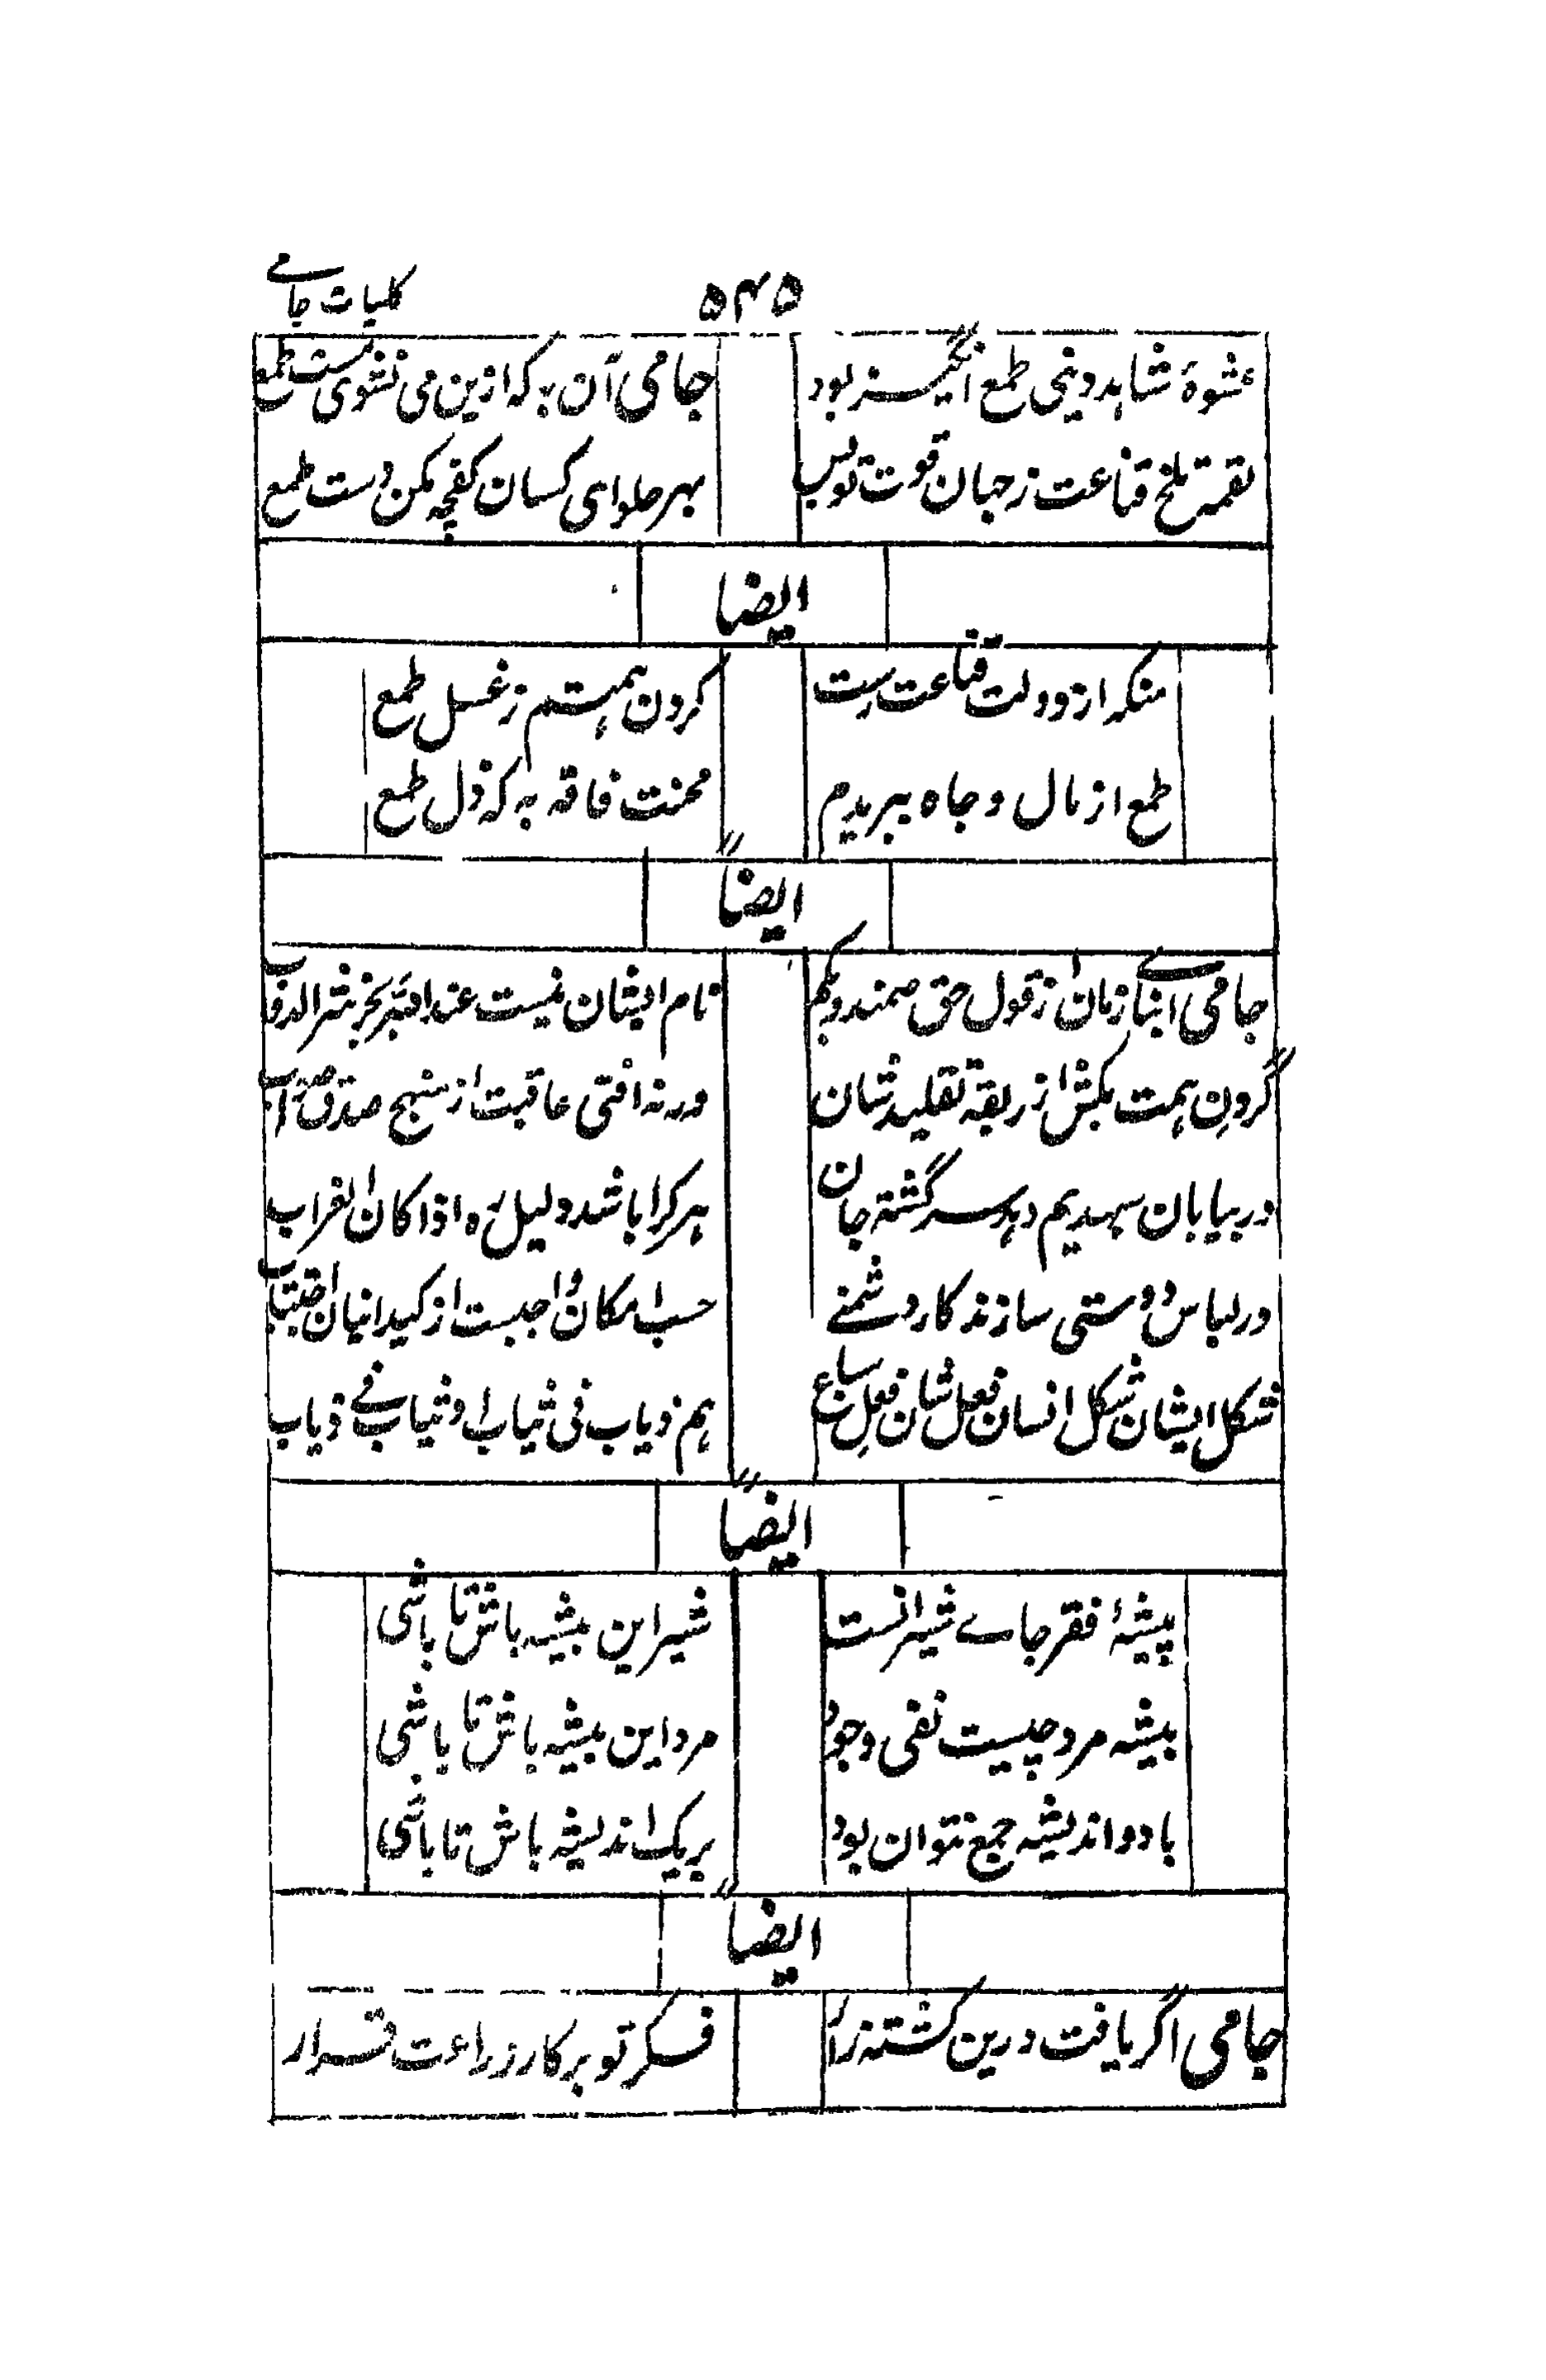 ۵۴۵
کلیات جامے
عشوهٔ شاهد دنیی طمع انگیز بود
جامی آن به که ازین می نشوی مست طمع
لقمهٔ تلخ قناعت ز جهان قوت تو بس
بهر حلوای کسان کفچه مکن دست طمع
ایضا
منکه از دولت قناعت رست
گردن همتم ز غل طمع
طمع از مال و جاه ببریدم
محنت فاقه به که ذل طمع
ایضاً
جامی ابنای زمان از قول حق صمند و بکم
نام ایشان نیست عند الله بجز شر الدواب
گردن همت بکش از ربقهٔ تقلید شان
ورنه افتی عاقبت از منهج صدق و صواب
در بیابان سر نهد یم دهد سرگشته جان
هر کرا باشد دلیل ره اذا کان الغراب
در لباس دوستی سازند کار دشمنے
حسب امکان واجبست از کید انیان اجتناب
شکل ایشان شکل انسان فعل شان فعل سباع
هم ذیاب فی ثیاب او ثیاب فے ذیاب
ایضاً
بیشهٔ فقر جاے شیرانست
شیر این بیشه باش تا باشی
پیشه مرد چیست نفی وجود
مرد این پیشه باش تا باشی
با دو اندیشه جمع نتوان بود
بر یک اندیشه باش تا باشی
ایضاً
جامی اگر یافت درین کشته زار
فکر تو بر کار زراعت قرار